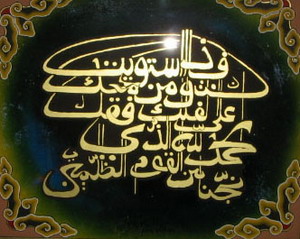 فاذا استويت
انت ومن معك
على الفلك فقل
الحمد لله الذى
نجنا من القوم الظلمين